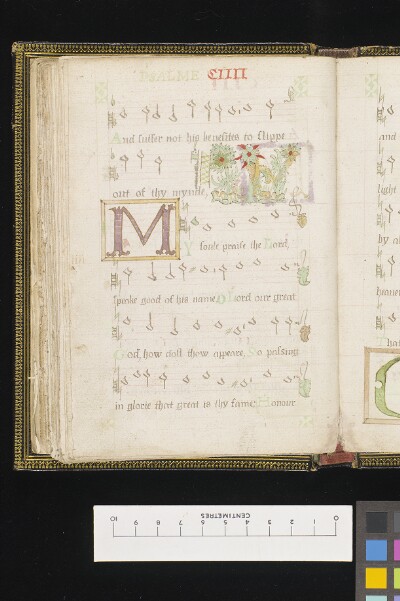 PSALME CIIII
And suffer not his benefites to slippe
out of thy mynde.
MY soule praise the Lord,
speake good of his name O Lord our great
God, how dost thow appeare, So passing
in glorie that great is thy fame, Honour
and
light
by a
heaven
0 1 2 3 4 5 6 7 8 9 10
CENTIMETRES